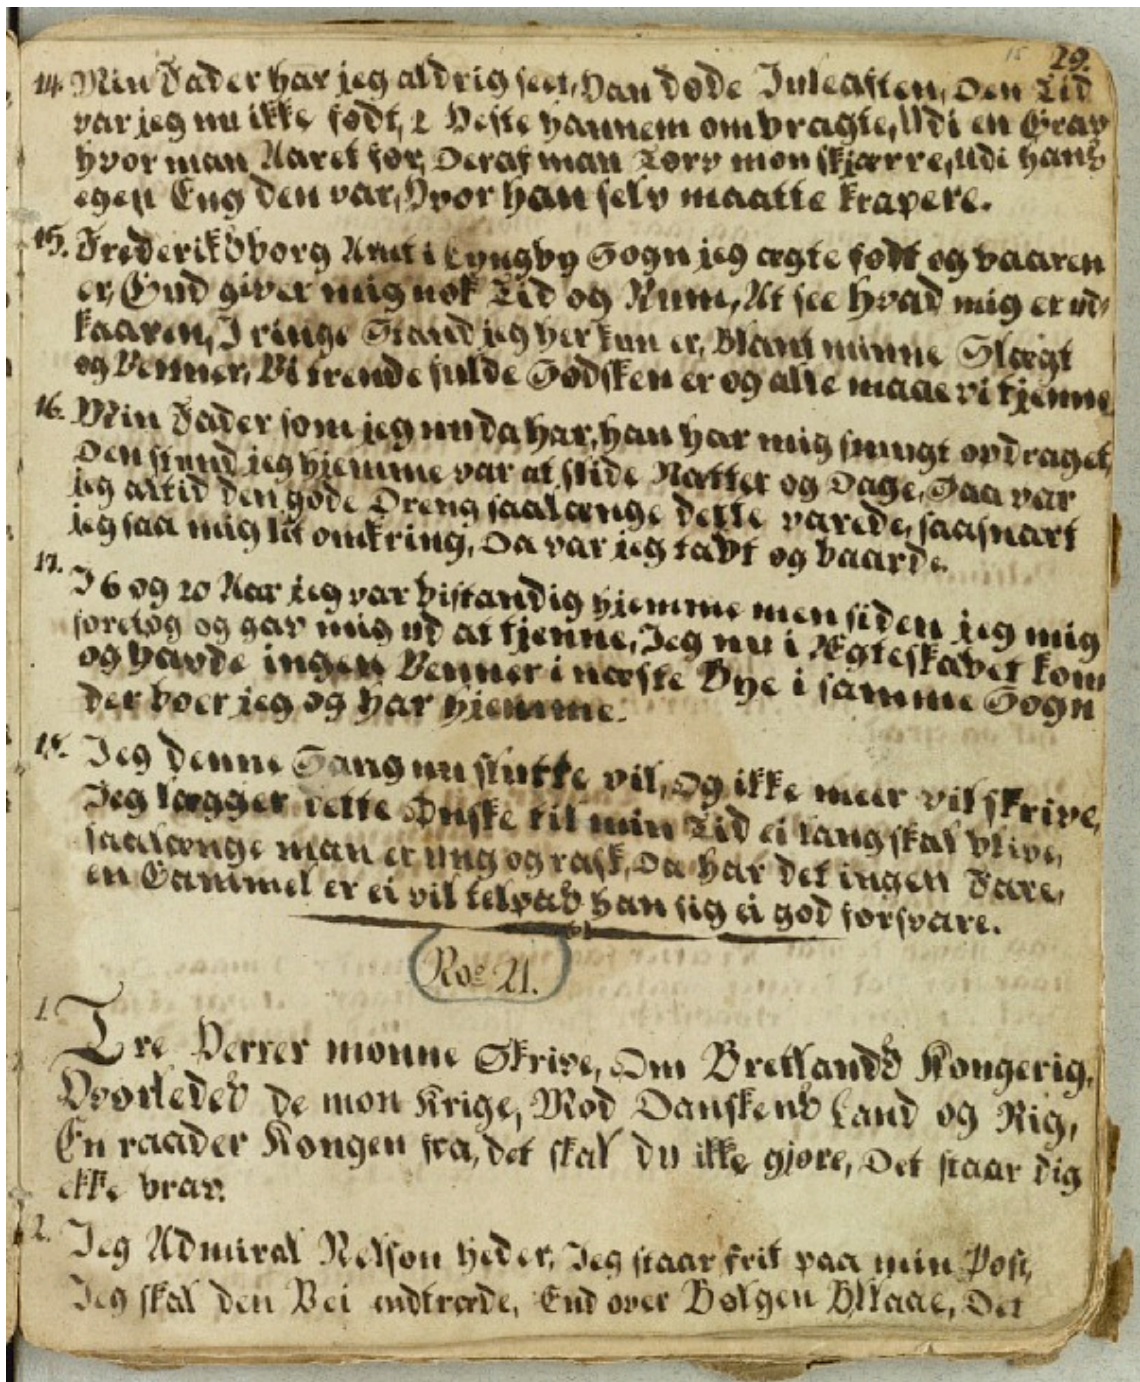 15 29.
14. Min Fader har jeg aldrig seet, Han døde Juleaften, Den Tid
var jeg nu ikke født, 2 Heste hannem ombragte, Udi en Grav
hvor man Aaret før, Deraf man Tørv mon skjærre, Udi hans
egen Eng den var, Hvor han selv maatte krapere.
15. Frederiksborg Amt i Lyngby Sogn jeg ægte født og baaren
er, Gud giver mig nok Tid og Rum, At see hvad mig er ud-
kaaren, I ringe Stand jeg her kun er, Blant minne Slægt
og Venner, Vi trende fulde Sødsken er og alle maae vi tjenne
16. Min Fader som jeg nu da har, han har mig smugt opdraget,
Den stund jeg hjemme var at slide Natter og Dage, Saa var
jeg altid den gode Dreng saalænge dette varede, saasnart
jeg saa mig lit omkring, Da var jeg tabt og baarde.
17. I 6 og 20 Aar jeg var bistandig hjemme men siden jeg mig
foretog og gav mig ud at tjenne, Jeg nu i Ægteskabet kom
og havde ingen Venner i næste Bye i samme Sogn
der boer jeg og har hjemme.
18. Jeg denne Sang nu slutte vil, Og ikke meer vil skrive,
Jeg lægger dette Ønske til min Tid ei lang skal blive,
saalænge man er ung og rask, Da har det ingen Fare,
en Gammel er ei vil tilpas han sig ei god forsvare.
No= 21.
1. Tre Herrer monne Skrive, Om Bretlands Kongerig,
Hvorledes de mon Krige, Mod Danskens Land og Rig,
En raader Kongen fra, det skal du ikke gjøre, Det staar dig
ikke brav.
2. Jeg Admiral Nelson heder, Jeg staar frit paa min Post,
Jeg skal den Vei indtræde, End over Bølgen Bllaae, Det